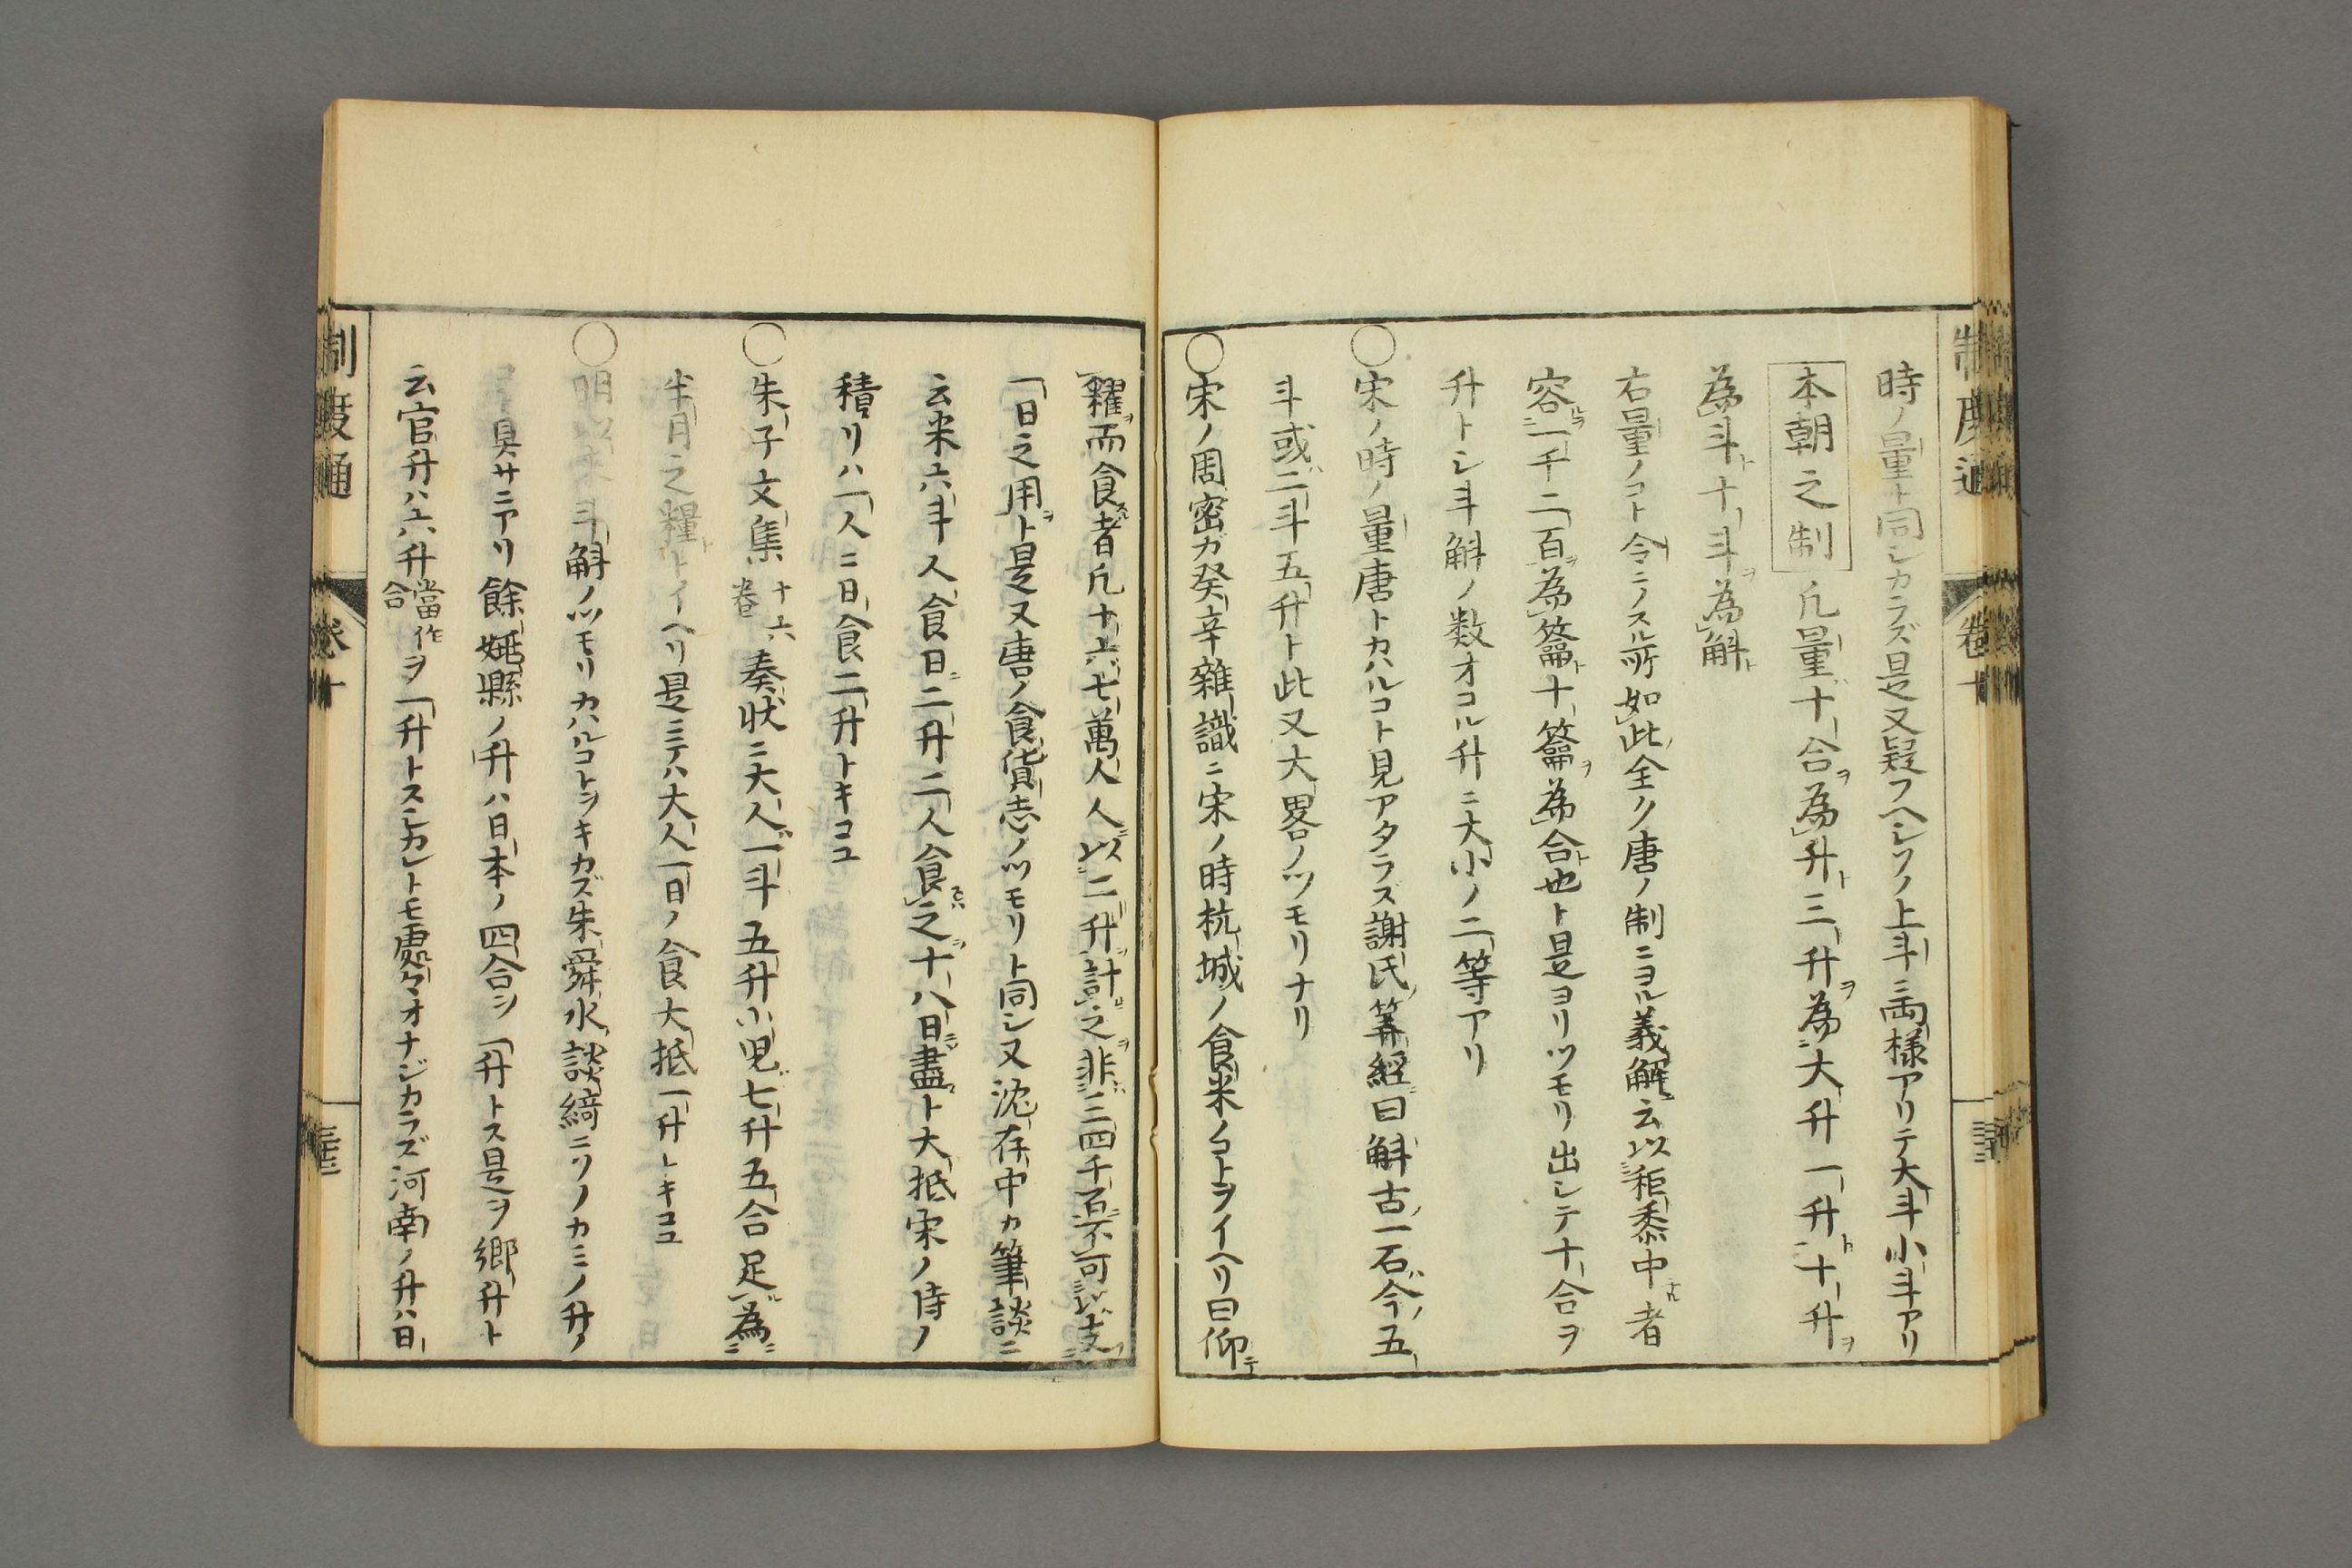 制度通
卷十
時ノ量ト同シカラズ是又疑フヘシソノ上斗ニ両様アリテ大斗小斗アリ
本朝之制 凡量十合ヲ為升ト三升ヲ為大升一升ト十升ヲ
為斗ト十斗ヲ為斛ト
右量ノコト令ニノスル所如此全ク唐ノ制ニヨル義解云以秬黍中ナル者
容ルヽヿ一千二百ヲ為籥ト十籥ヲ為合ト也ト是ヨリツモリ出シテ十合ヲ
升トシ斗斛ノ数オコル升ニ大小ノ二等アリ
○宋ノ時ノ量唐トカハルコト見アタラス謝氏筭経曰斛古一石今ノ五
斗或二斗五升ト此又大畧ノツモリナリ
○宋ノ周密カ癸辛雜識ニ宋ノ時杭城ノ食米ノコトヲイヘリ曰仰テ
糴ヲ而食者凡十六七萬人人以二升計之ヲ非三四千石不可以支
一日之用ヲト是又唐ノ食貨志ノツモリト同シ又沈存中カ筆談ニ
云米六斗人食日ニ二升二人食之ヲ十八日盡ト大抵宋ノ侍ノ
積リハ一人ニ日食二升トキコユ
○朱子文集十六卷奏状ニ大人一斗五升小児七升五合足為
半月之糧トイヘリ是ニテハ大人一日ノ食大抵一升トキコユ
○明以来斗斛ノツモリカハルコトヲキカズ朱舜水談綺ニソノカミノ升ノ
具サニアリ餘姚縣ノ升ハ日本ノ四合ヲ一升トス是ヲ郷升ト
云官升ハ六升當作合ヲ一升トスシカレトモ處々オナジカラズ河南ノ升ハ日
制度通
卷十